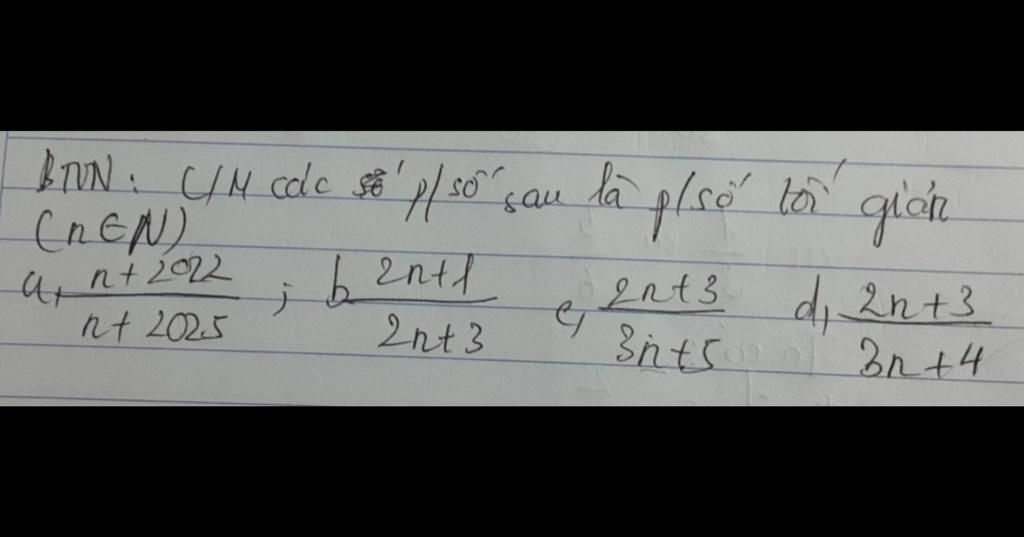 BTNN: C/M các số p/số sau là p/số tối giản
(n∈N)
a, n+2022 / n+2025 ; b, 2n+1 / 2n+3 c, 2n+3 / 3n+5 d, 2n+3 / 3n+4